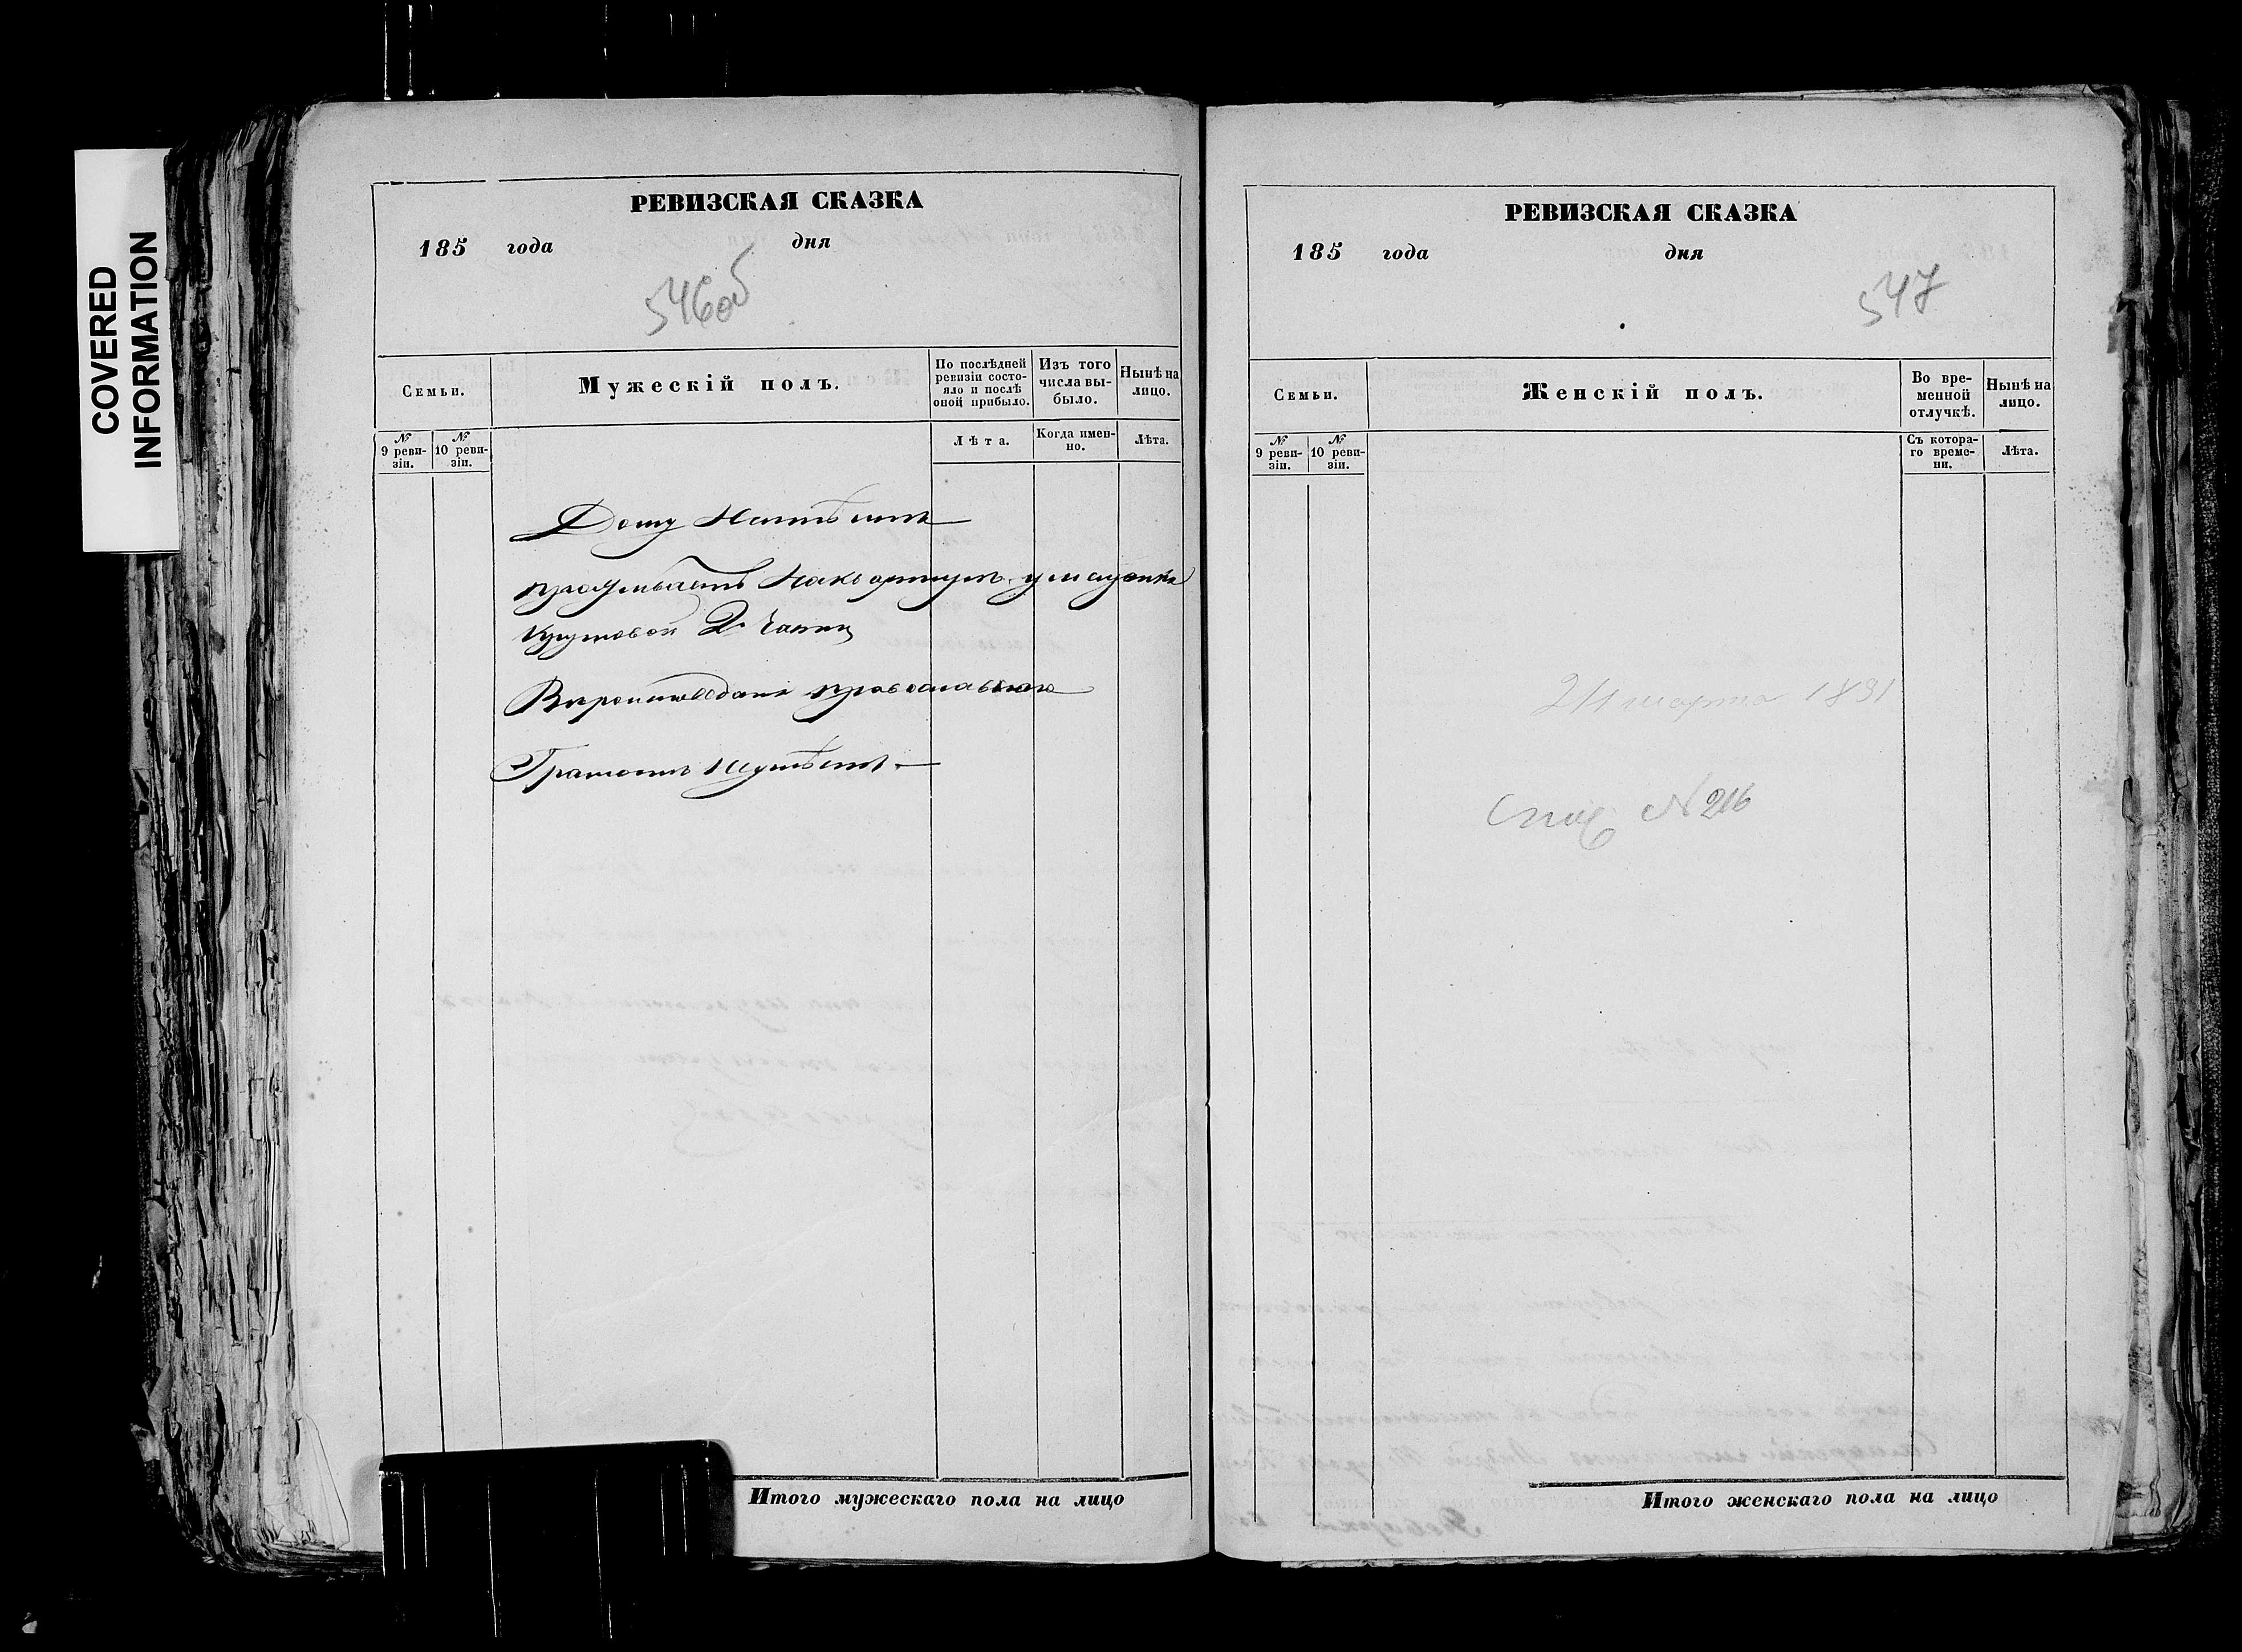 COVERED
INFORMATION
РЕВИЗСКАЯ СКАЗКА
185 года дня
546об
Семьи.
Мужескій полъ.
По послѣдней ревизіи состояло и послѣ оной прибыло.
Изъ того числа выбыло.
Нынѣ на лицо.
№ 9 ревизіи.
№ 10 ревизіи.
Лѣта.
Когда именно.
Лѣта.
Дому Неимѣетъ
проживаетъ на квартире у мещанки
2 части
Вероисповеданія православнаго
Грамоте Неумѣетъ.
Итого мужескаго пола на лицо
РЕВИЗСКАЯ СКАЗКА
185 года дня
547
Семьи.
Женскій полъ.
Во временной отлучкѣ.
Нынѣ на лицо.
№ 9 ревизіи.
№ 10 ревизіи.
Съ котораго времени.
Лѣта.
марта
№ 216
Итого женскаго пола на лицо